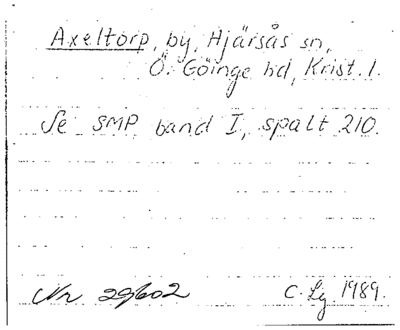 Axeltorp, by, Hjärsås sn,
Ö. Göinge hd, Krist. l.
Se SMP band I, spalt 210.
Nr 29602 C. Lg 1989.